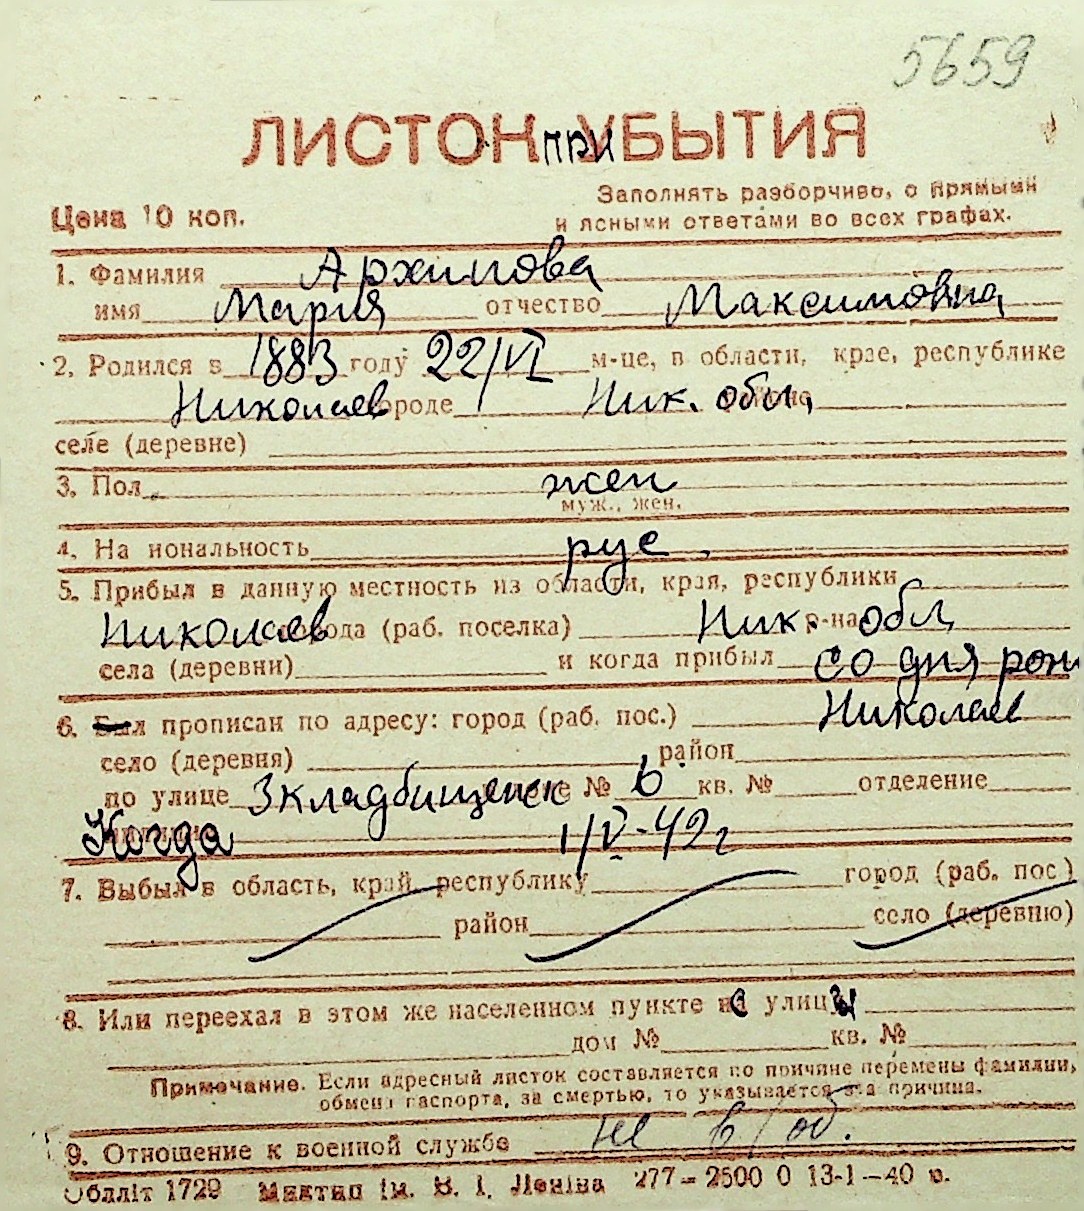 5659
ЛИСТОК ПРИ УБЫТИЯ
Заполнять разборчиво, с прямыми
Цена 10 коп. и ясными ответами во всех графах.
1. Фамилия Архипова
имя Мария отчество Максимовна
2. Родился в 1883 году 22/VI м-це, в области, крае, республике
Николаев городе Ник. обл.
селе (деревне)
3. Пол жен
муж., жен.
4. Национальность рус.
5. Прибыл в данную местность из области, края, республики
Николаев города (раб. поселка) Ник. р-на обл
села (деревни) и когда прибыл со дня рож
6. Был прописан по адресу: город (раб. пос.) Николаев
село (деревня) район
по улице 3 кладбищенск № 6 кв. № отделение
Когда 1/V-42 г
7. Выбыл в область, край, республику город (раб. пос.)
район село (деревню)
8. Или переехал в этом же населенном пункте с улицы
дом № кв. №
Примечание. Если адресный листок составляется по причине перемены фамилии,
обмена паспорта, за смертью, то указывается эта причина.
9. Отношение к военной службе не в/об.
Облліт 1729 Миктип ім. В. І. Леніна 277—2500 0 13-1—40 р.